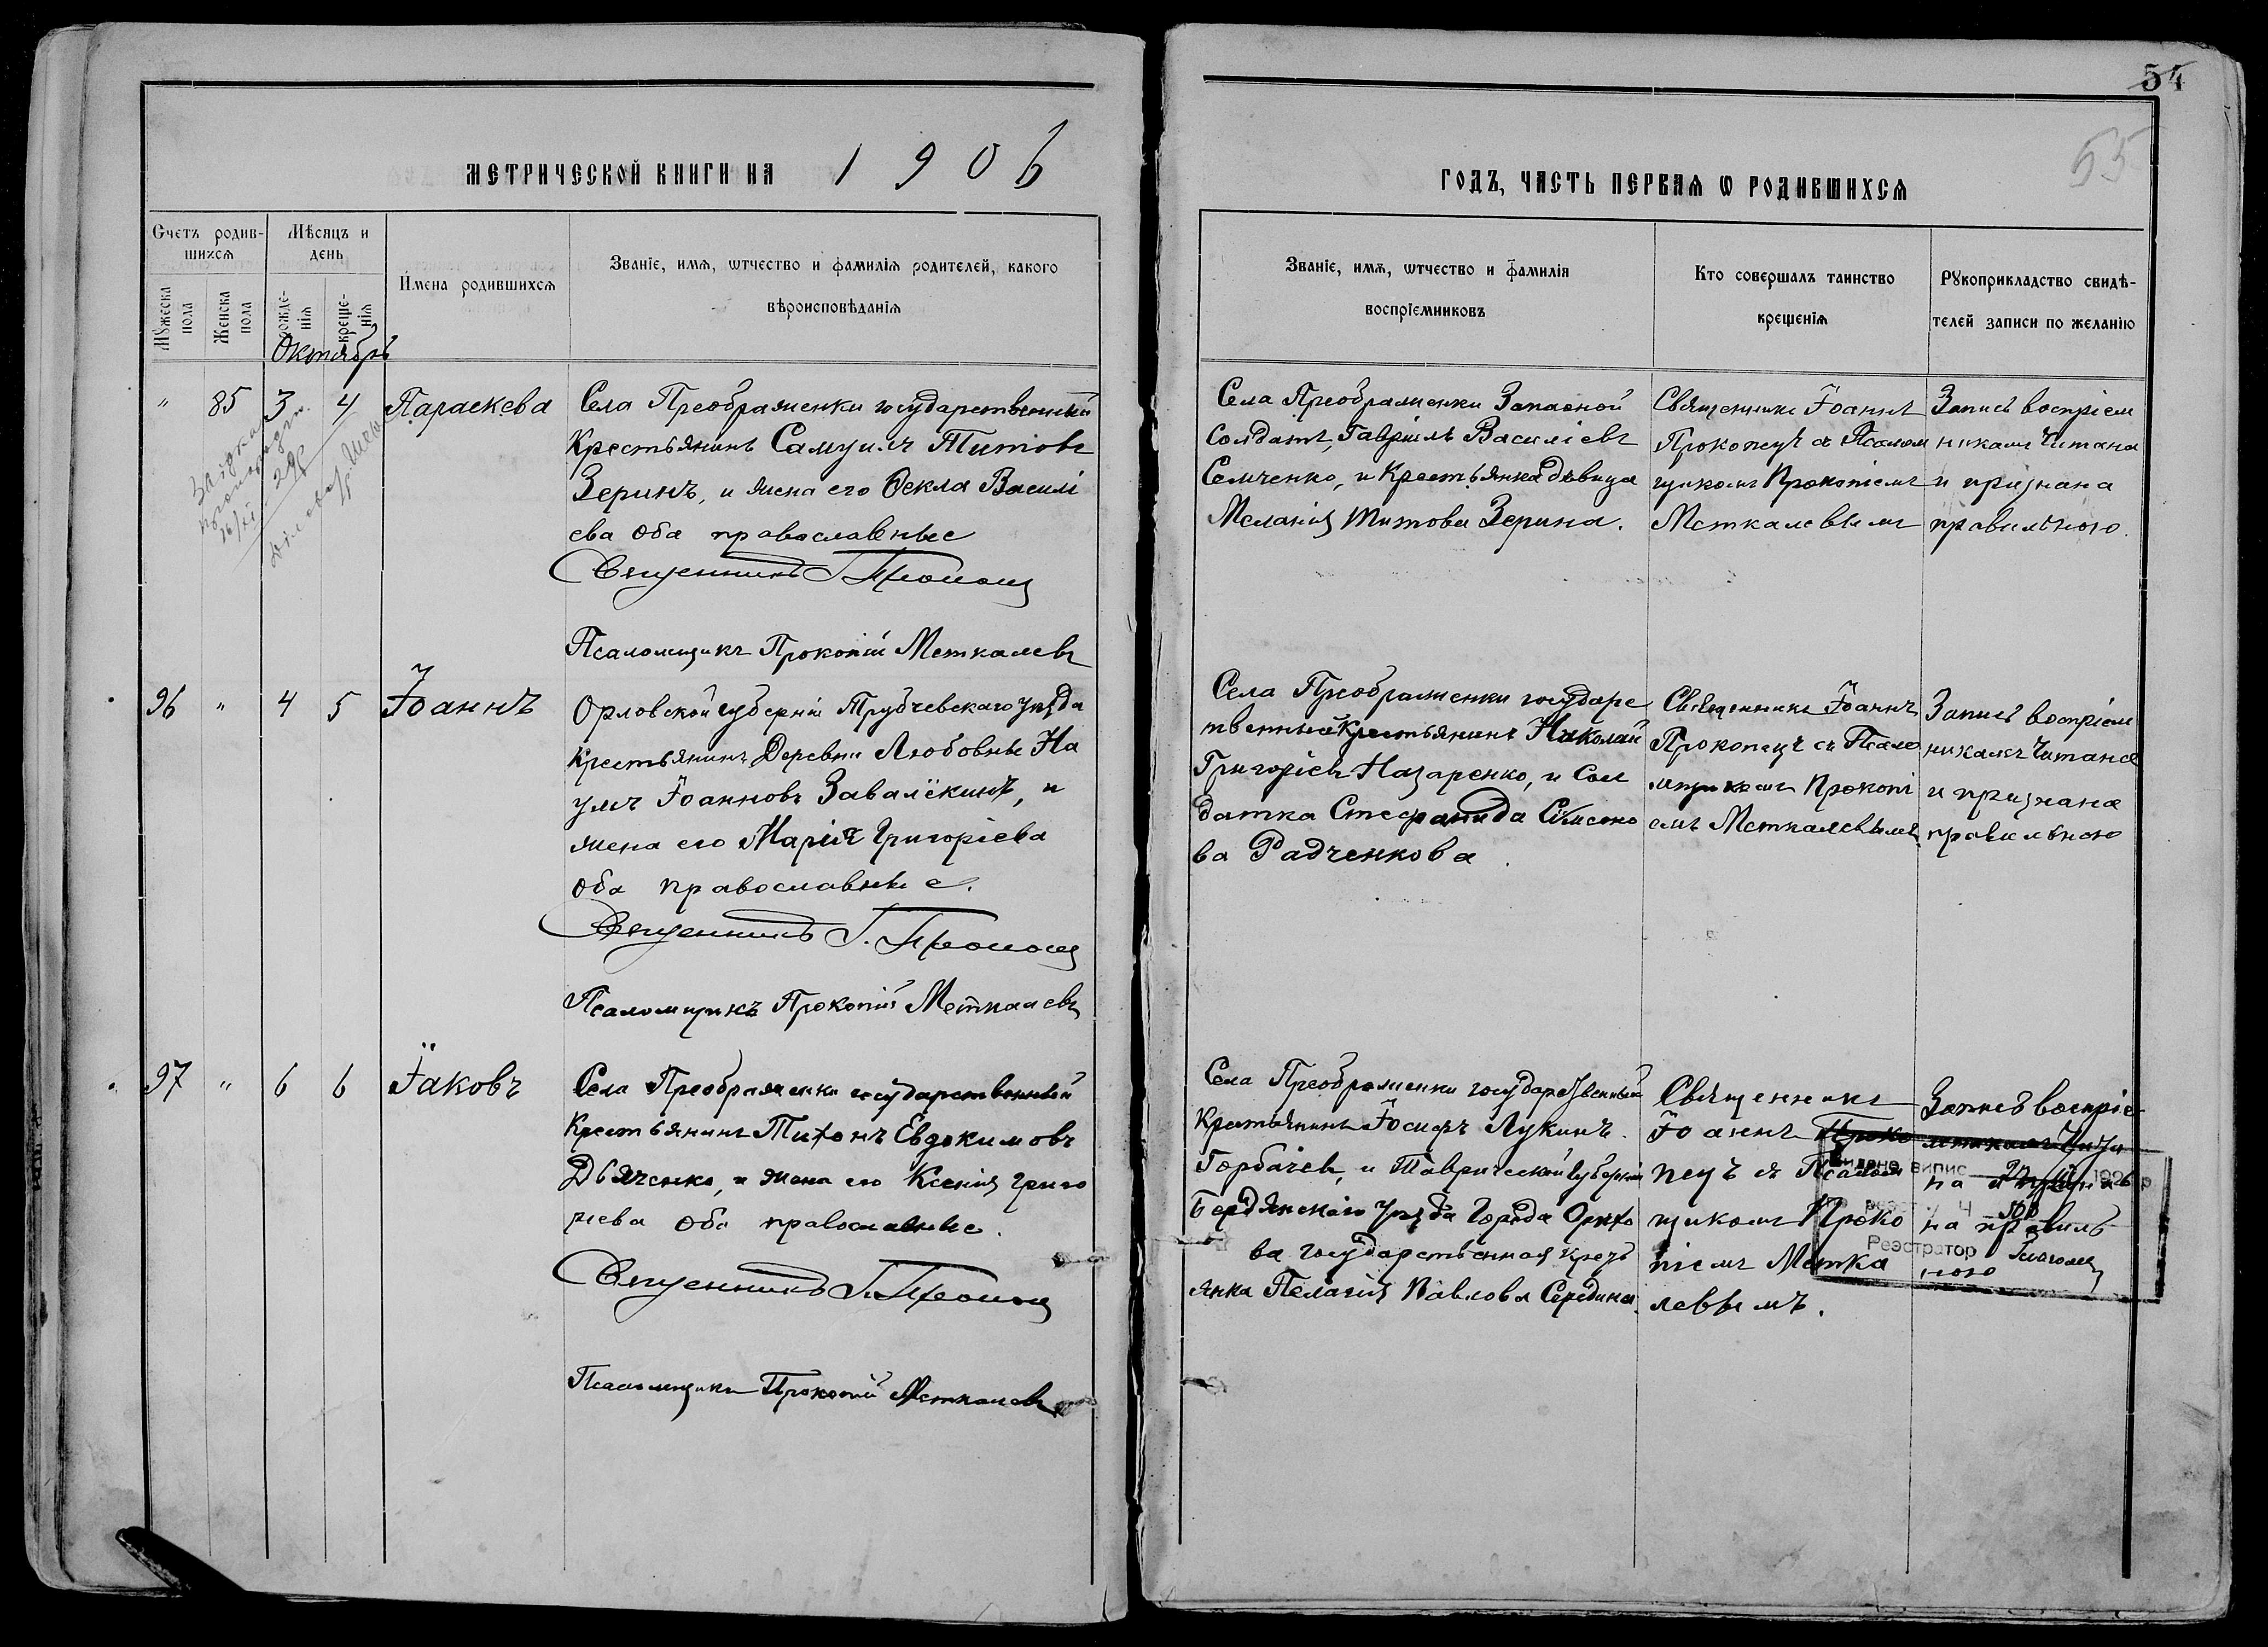 54
55
МЕТРИЧЕСКОЙ КНИГИ НА 1906
ГОДЪ, ЧАСТЬ ПЕРВАѦ Ѡ РОДИВШИХСѦ
Счетъ родив-
шихсѧ
Мѣсяцъ и
день
Мужеска
пола
Женска
пола
рожде-
нїѧ
креще-
нїѧ
Имена родившихсѧ
Званїе, имѧ, ѡтчество и фамилїѧ родителей, какого
вѣроисповѣданїѧ
Званїе, имѧ, ѡтчество и фамилїѧ
воспрїемниковъ
Кто совершалъ таинство
крещенїѧ
Рꙋкоприкладство свидѣ-
телей записи по желанїю
Октябрь
" 85 3 4 Параскева
Села Преображенки государственный
Крестьянинъ Самуилъ Титовъ
Зеринъ, и жена его Ѳекла Василі
ева оба православные
Священникъ І. Прокопец
Псаломщикъ Прокопій Меткалевъ
Села Преображенки Запасной
Солдатъ, Гавріилъ Василіевъ
Семченко, и Крестьянка дѣвица
Меланія Титова Зерина.
Священникъ Іоаннъ
Прокопецъ съ Псалом
щикомъ Прокопіемъ
Меткалевымъ
Запись воспріем
никамъ Читана
и признана
правильною.
96 " 4 5 Іоаннъ
Орловской губерніи Трубчевскаго уѣзда
Крестьянинъ Деревни Любовны На
умъ Іоанновъ Завалёкинъ, и
жена его Марія Григоріева
оба православные.
Священникъ І. Прокопец
Псаломщикъ Прокопій Меткалевъ
Села Преображенки государс
твенный Крестьянинъ Николай
Григоріевъ Назаренко, и Сол
датка Стефанида Симеоно
ва Радченкова
Священникъ Іоаннъ
Прокопецъ съ Псало
мщикомъ Прокопі
емъ Меткалевымъ
Запись воспріем
никамъ Читана
и признана
правильною
97 " 6 6 Іаковъ
Села Преображенки государственный
Крестьянинъ Тихонъ Евдокимовъ
Дьяченко, и жена его Ксенія Григо
ріева оба православные.
Священникъ І. Прокопец
Псаломщикъ Прокопій Меткалевъ
Села Преображенки государственный
Крестьянинъ Іосифъ Лукинъ
Горбачевъ, и Таврической губерніи
Бердянскаго уѣзда города Орѣхо
ва государственная крест
янка Пелагія Павлова Середина.
Священникъ
Іоаннъ Проко
пецъ съ Псалом
щикомъ Проко
піемъ Метка
левымъ.
Запись воспріе
мникамъ Чита
на и призна
на правиль
ною
Видано випис
192 р
Реэстратор